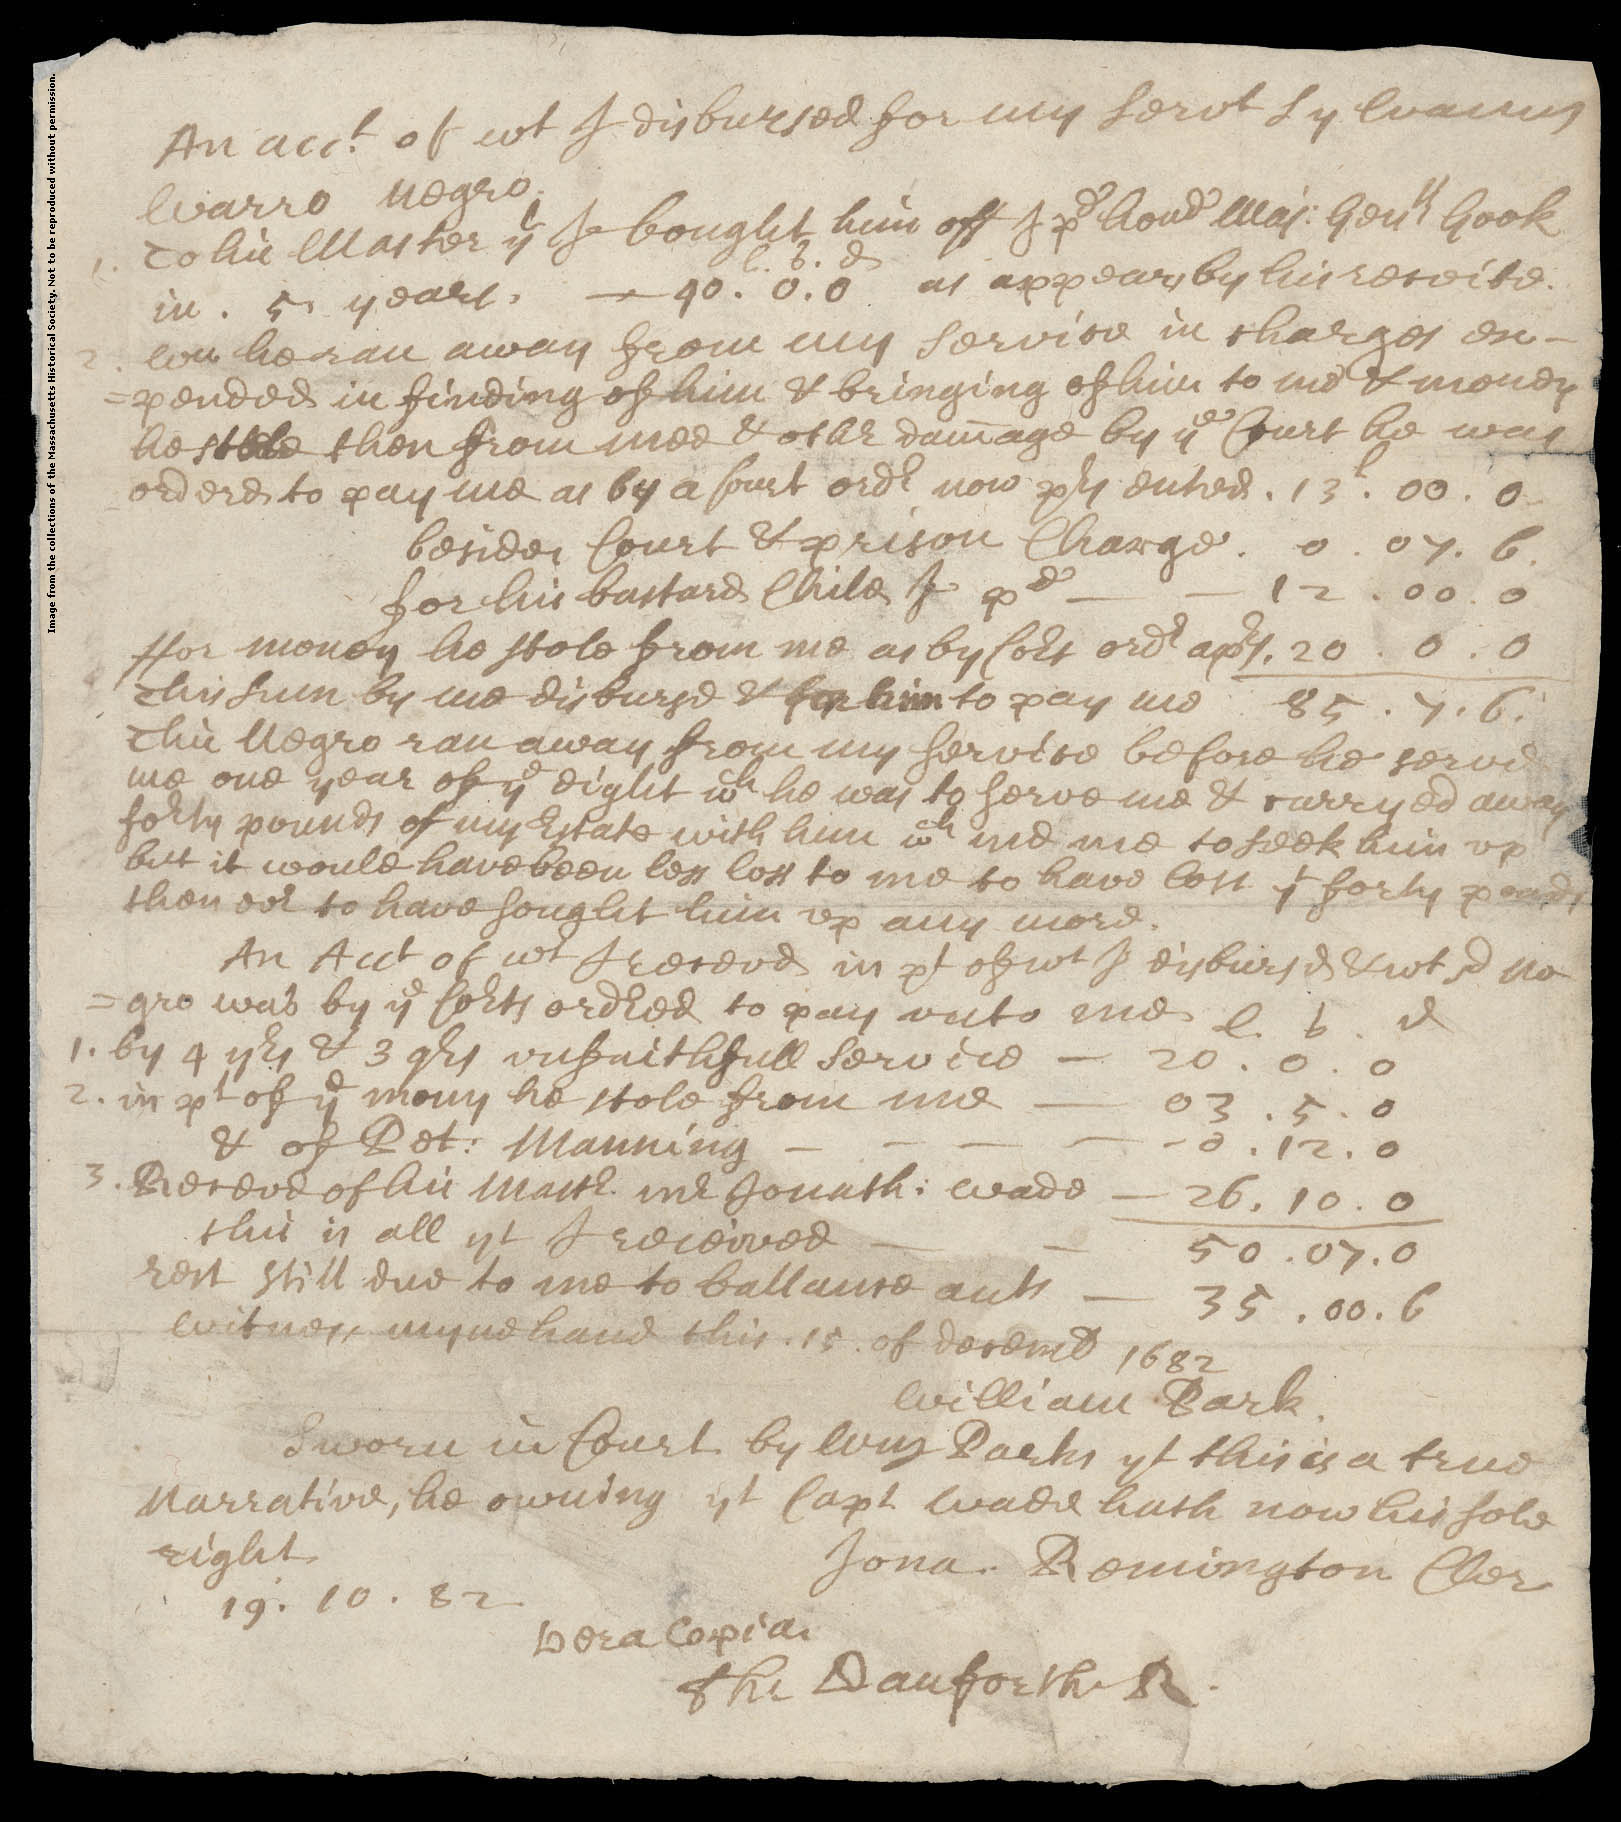 Image from the collections of the Massachusetts Historical Society. Not to be reproduced without permission.
An acct. of wt I disbursed for my servt Sylvanus
Warro Negro.
1. To his Master yt I bought him off I pd honrd Maj: Genll Gook
l. s. d
in . 5 . years . — 40 . 0 . 0 as appears by his receite.
2. wn he ran away from my service in charges ex-
=pended in finding of him & bringing of him to me & money
he stole then from mee & othr damage by ye Court he was
ordered to pay me as by a Court ordr now entred . 13l . 00 . 0
besides Court & prison Charge . 0 . 07 . 6 .
for his bastard Child I pd — — 12 . 00 . 0
ffor money he stole from me as by Corts ordr aprs. 20 . 0 . 0
This sum by me disbursd & for him to pay me 85 . 7 . 6 .
This Negro ran away from my service before he served
me one year of ye eight wch he was to serve me & carryed away
forty pounds of my Estate with him wch me to seek him vp
but it would have been less loss to me to have lost yt forty pounds
then to have sought him vp any more.
An Acct of wt I receved in pt of wt I disbursd & wt sd Ne
=gro was by ye Corts ordred to pay unto me l . s . d
1. by 4 yrs & 3 qrs vnfaithfull service — 20 . 0 . 0
2. in pt of ye mony he stole from me — 03 . 5 . 0
& of Pet: Manning — — — — 0 . 12 . 0
3. Receved of his Mastr. mr Jonath: Wade — 26 . 10 . 0
this is all yt I received — — 50 . 07 . 0
rest still due to me to ballance — 35 . 00 . 6
Witness myne hand this . 15 . of decemb 1682
William Park.
Sworn in Court by Wm Parks yt this is a true
Narrative, he owning yt Capt Wade hath now his sole
right
Jona. Remington Cler
19 . 10 . 82
Vera Copia.
Tho Danforth R.